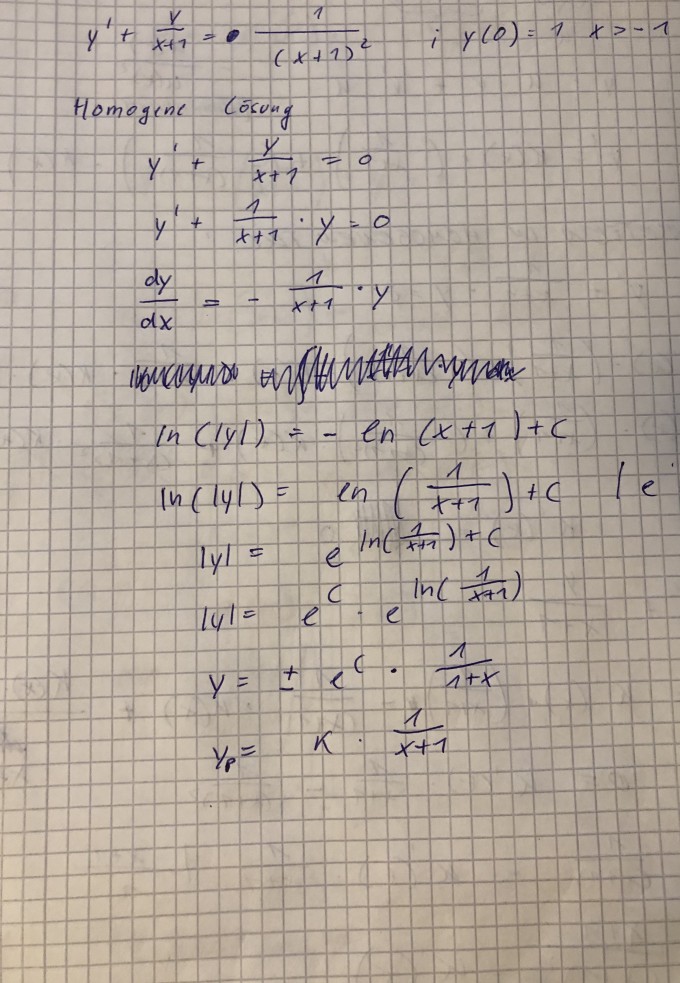 y' + y/(x+1) = 1/(x+1)² ; y(0) = 1 x > -1
Homogene Lösung
y' + y/(x+1) = 0
y' + 1/(x+1) · y = 0
dy/dx = - 1/(x+1) · y
ln(|y|) = - ln (x+1) + C
ln(|y|) = ln (1/(x+1)) + C | e
|y| = e^(ln(1/(x+1)) + C)
|y| = e^C · e^(ln(1/(x+1)))
y = ± e^C · 1/(1+x)
y_p = K · 1/(x+1)